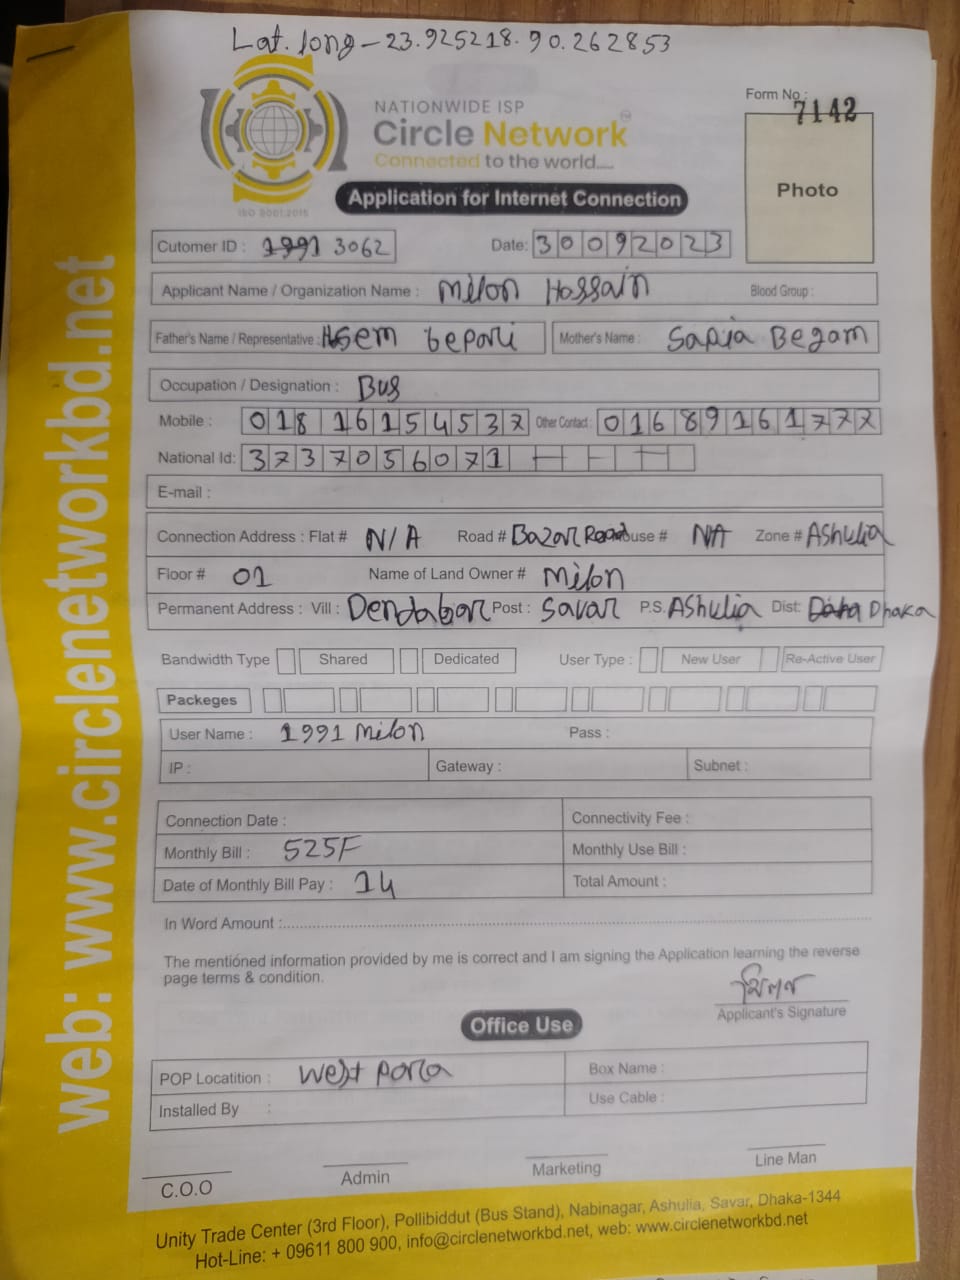 Lat. long - 23.925218. 90.262853
NATIONWIDE ISP
Circle Network
Connected to the world....
ISO 9001:2015
Form No :
7142
Photo
Application for Internet Connection
Cutomer ID : 1991 3062 Date: 30092023
Applicant Name / Organization Name : Milon Hossain Blood Group :
Father's Name / Representative : Hsem bepari Mother's Name : Sapia Begam
Occupation / Designation : Bus
Mobile : 01816154537 Other Contact : 01689161777
National Id: 3737056071
E-mail :
Connection Address : Flat # N/A Road # Bazar Road House # N/A Zone # Ashulia
Floor # 01 Name of Land Owner # Milon
Permanent Address : Vill : Dendabar Post : Savar P.S. Ashulia Dist: Dhaka
Bandwidth Type Shared Dedicated User Type : New User Re-Active User
Packeges
User Name : 1991 Milon Pass :
IP : Gateway : Subnet :
Connection Date : Connectivity Fee :
Monthly Bill : 525F Monthly Use Bill :
Date of Monthly Bill Pay : 14 Total Amount :
In Word Amount :
The mentioned information provided by me is correct and I am signing the Application learning the reverse
page terms & condition.
মিলন
Applicant's Signature
Office Use
POP Locatition : West Para Box Name :
Installed By : Use Cable :
C.O.O Admin Marketing Line Man
Unity Trade Center (3rd Floor), Pollibiddut (Bus Stand), Nabinagar, Ashulia, Savar, Dhaka-1344
Hot-Line: + 09611 800 900, info@circlenetworkbd.net, web: www.circlenetworkbd.net
web: www.circlenetworkbd.net